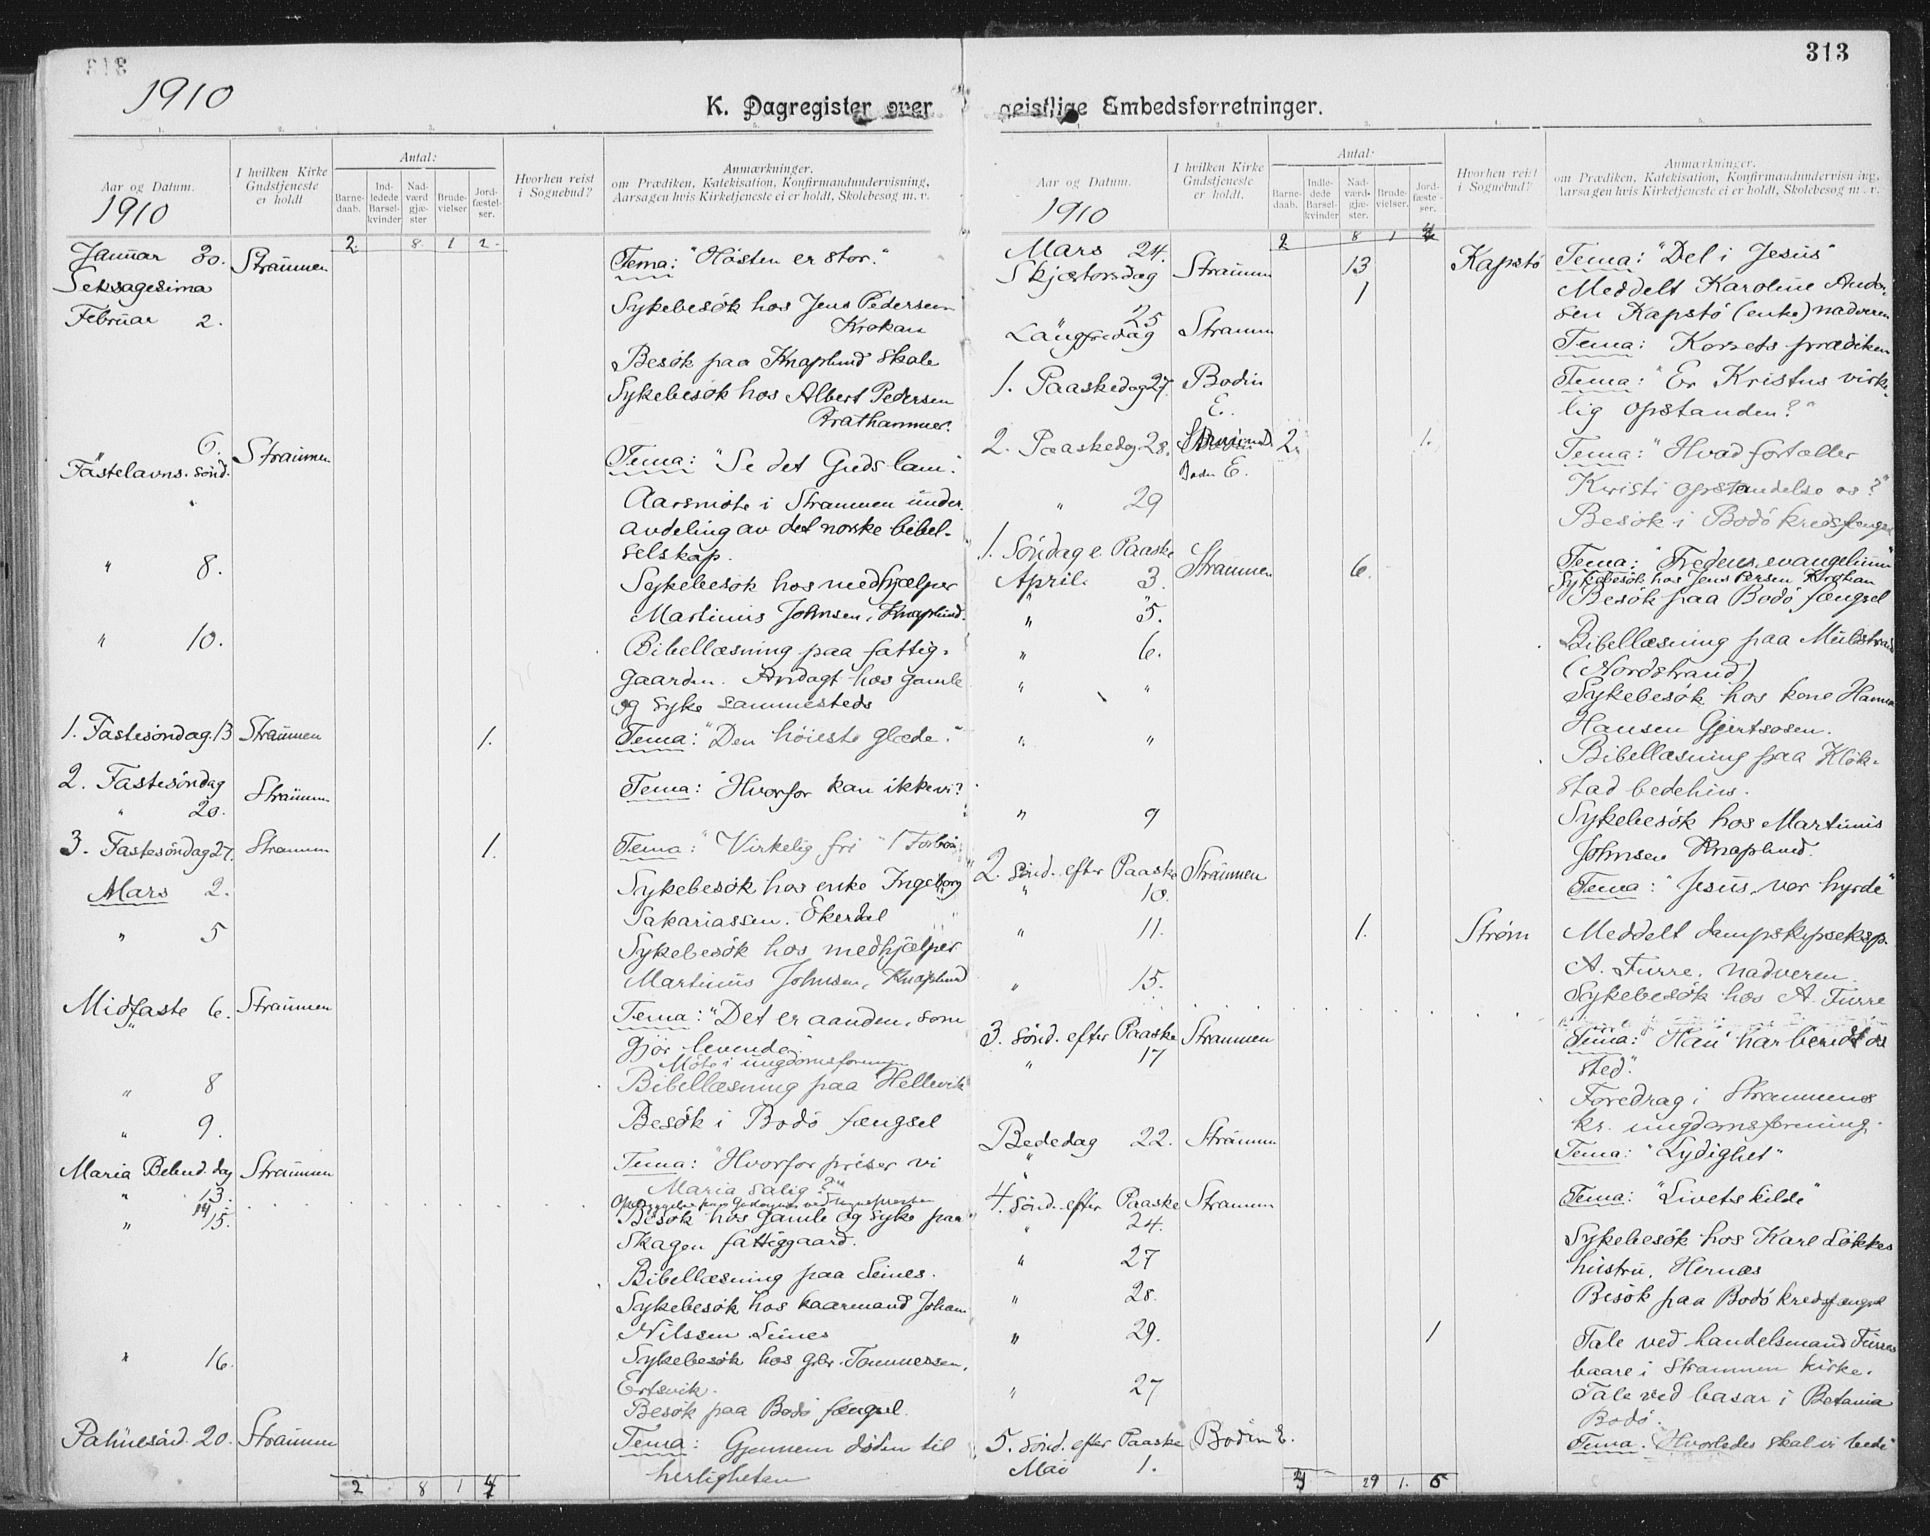 313
1910
K. Dagregister over
1. 2. 3. 4. 5.
Aar og Datum.
I hvilken Kirke Gudstjeneste er holdt
Antal:
Barnedaab.
Indledede Barselkvinder
Nadværdgjæster
Brudevielser
Jordfæstelser.
Hvorhen reist i Sognebud?
Anmærkninger.
om Prædiken, Katekisation, Konfirmandundervisning,
Aarsagen hvis Kirketjeneste ei er holdt, Skolebesøg m. v.
1910
2. 8. 1 2.
Januar 30. Straumen Tema: "Høsten er stor."
Seksagesima
Februar 2. Sykebesøk hos Jens Pedersen
Krokan
Besøk paa Knaplund skole
Sykebesøk hos Albert Pedersen
Brathammer.
6. Straumen
Fastelavns. sønd. Tema: "Se det Guds lam".
" Aarsmøte i Straumen under
avdeling av det norske bibel-
selskap.
" 8. Sykebesøk hos medhjælper
Martinus Johnsen, Knaplund.
" 10. Bibellæsning paa fattig-
gaarden. Andagt hos gamle
og syke sammesteds
1. Fastesøndag 13 Straumen 1. Tema: "Den høieste glæde."
2. Fastesøndag
" 20. Straumen Tema: "Hvorfor kan ikke vi?
3. Fastesøndag 27. Straumen 1. Tema: "Virkelig fri"
Mars 2. Sykebesøk hos enke Ingeborg
Sakariassen. Ekerdal
" 5 Sykebesøk hos medhjælper
Martinus Johnsen, Knaplund
Midfaste 6. Straumen Tema: "Det er aanden, som
gjør levende"
Møte i ungdomsforeningen
" 8 Bibellæsning paa Hellevik
" 9. Besøk i Bodø fængsel
Maria Bebud. dag Straumen Tema: "Hvorfor priser vi
" 13. Maria salig?"
14
" 15. Besøk hos gamle og syke paa
Skagen fattiggaard.
Bibellæsning paa Seines.
Sykebesøk hos kaarmand Johan
Nilssen Seines
" 16. Sykebesøk hos gbr. Tommersen,
Ertsvik.
Besøk paa Bodø fængsel.
Palmesønd. 20. Straumen Tema: Gjennem døden til
herligheten
2 8 1 4
313
geistlige Embedsforretninger.
1. 2. 3. 4. 5.
Aar og Datum.
I hvilken Kirke Gudstjeneste er holdt.
Antal:
Barnedaab.
Indledede Barselkvinder
Nadværdgjæster.
Brudevielser.
Jordfæstelser.
Hvorhen reist i Sognebud?
Anmærkninger.
om Prædiken, Katekisation, Konfirmandundervisning,
Aarsagen hvis Kirketjeneste ei er holdt, Skolebesøg m. v.
1910
2 8 1 4
Mars 24. Tema: "Del i Jesus"
Skjærtorsdag Straumen 13 Kapstø Meddelt Karoline Ander-
1 sen Kapstø (enke) nadveren
25
Langfredag Straumen Tema: Korsets prædiken
1. Paaskedag 27. Bodin Tema: "Er Kristus virke-
E. lig opstanden?"
2. Paaskedag 28. 2. 1. Tema: "Hvad fortæller
Bodin E. Kristi opstandelse os?"
" 29 Besøk i Bodø kredsfængsel
1. Søndag e. Paaske
April. 3. Straumen 6. Tema: "Fredens evangelium"
Sykebesøk hos Jens Persen Krokan
" 5. Besøk paa Bodø fængsel
" 6. Bibellæsning paa Mulstrand
(Nordstrand)
" " Sykebesøk hos kone Hanna
Hansen Gjertsosen.
" " Bibellæsning paa Kløk-
stad bedehus.
" 9 Sykebesøk hos Martinus
Johnsen Knaplund.
2. sønd. efter Paaske Straumen
" 10. Tema: "Jesus, vor hyrde"
" 11. 1. Strøm Meddelt dampskipseksp.
A. Furre, nadveren
" 15. Sykebesøk hos A. Furre
3. sønd. efter Paaske Straumen Tema: "Han har beredt os
" 17 sted".
Foredrag i Straumens
kr. ungdomsforening.
Bededag 22. Straumen Tema: "Lydighet"
4. sønd. efter Paaske Straumen Tema: "Livets kilde"
" 24.
" 27 Sykebesøk hos Karl Løkkes
hustru, Hernes
" 28. Besøk paa Bodø kredsfængsel
" 29. 1 Tale ved handelsmand Furres
baare i Straumen kirke.
" 27 Tale ved basar i Betania
Bodø.
5. sønd. efter Paaske Bodin E. Tema. Hvorledes skal vi bede
Mai 1.
29 1. 5